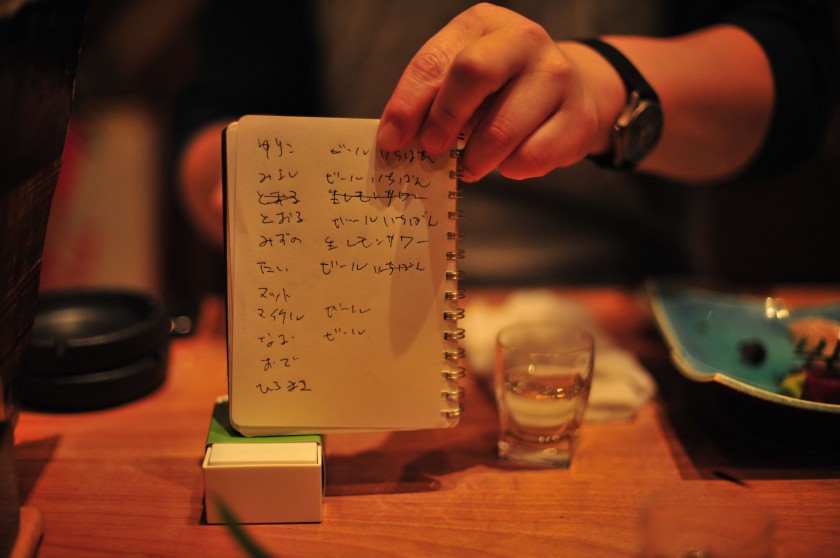 ゆりこ ビール いちばん
みよし ビール いちばん
とおる 生レモンサワー
とおる ビール いちばん
みずの 生レモンサワー
たい ビール いちばん
マット
マイケル ビール
なお ビール
おで
ひろまさ